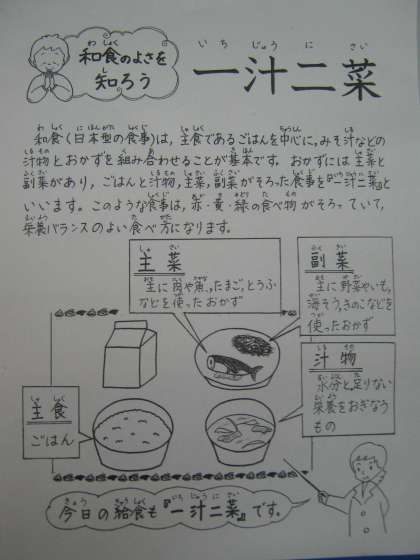 和食のよさを
知ろう
一汁二菜
和食(日本型の食事)は,主食であるごはんを中心に,みそ汁などの
汁物とおかずを組み合わせることが基本です。おかずには主菜と
副菜があり,ごはんと汁物,主菜,副菜がそろった食事を『一汁二菜』と
いいます。このような食事は,赤・黄・緑の食べ物がそろっていて,
栄養バランスのよい食べ方になります。
主菜
主に肉や魚,たまご,とうふ
などを使ったおかず
副菜
主に野菜やいも,
海そう,きのこなどを
使ったおかず
汁物
水分と足りない
栄養をおぎなう
もの
主食
ごはん
今日の給食も『一汁二菜』です。